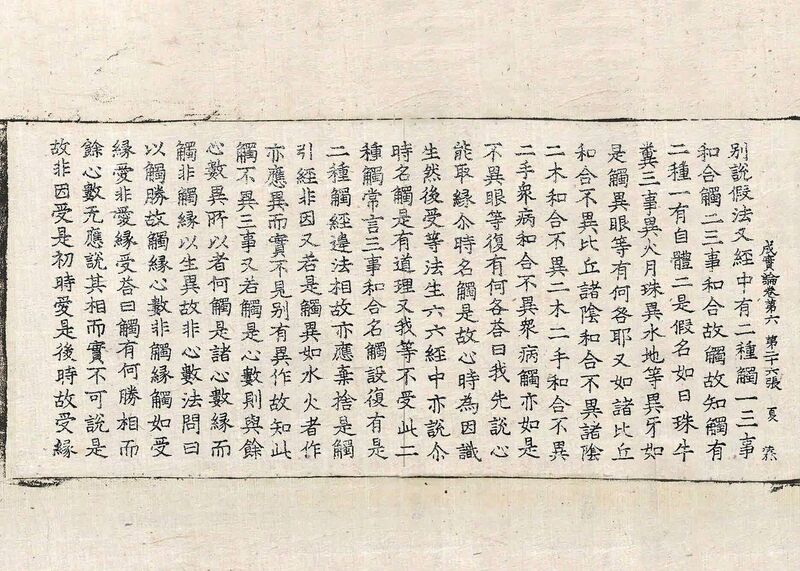 成實論卷第六 第二十六張 夏
別說假法又經中有二種觸一三事
和合觸二三事和合故觸故知觸有
二種一有自體二是假名如日珠牛
糞三事異火月珠異水地等異牙如
是觸異眼等有何咎耶又如諸比丘
和合不異比丘諸陰和合不異諸陰
二木和合不異二木二手和合不異
二手衆病和合不異衆病觸亦如是
不異眼等復有何咎荅曰我先說心
能取緣尒時名觸是故心時為因識
生然後受等法生六六經中亦說尒
時名觸是有道理又我等不受此二
種觸常言三事和合名觸設復有是
二種觸經違法相故亦應棄捨是觸
引經非因又若是觸異如水火者作
亦應異而實不見別有異作故知此
觸不異三事又若觸是心數則與餘
心數異所以者何觸是諸心數緣而
觸非觸緣以生異故非心數法問曰
以觸勝故觸緣心數非觸緣觸如受
緣愛非愛緣受荅曰觸有何勝相而
餘心數无應說其相而實不可說是
故非因受是初時愛是後時故受緣